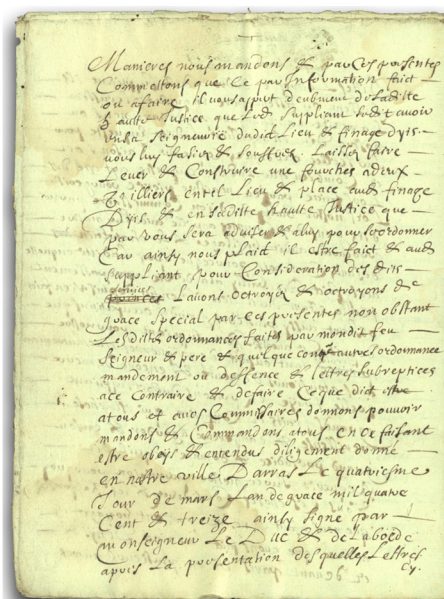 Manieres nous mandons & par ces presentes
Commettons que ce par Information faict
ou a faire il vous appert deubment de ladite
haulte Justice que led suppliant dudit avoir
en sa seigneurie dudit Lieu & finage dyis
vous luy fasiez & souffrez Laisser faire
Lever & Construire une fourches a deux
Pilliers en tel Lieu & place aud finage
Dyis & en saditte haulte Justice que
par vous sera advisez & a luy pour ordonner
Car ainsy nous plaid il estre faict & aud
suppliant pour Consideration des dits
Lavons octroyez & octroyons de
grace special par ces presentes non obstant
Lesdits ordonnances faites par mondit feu
seigneur & pere & quelque conqe autres ordonnance
mandement ou deffence & lettres subreptices
a ce Contraire & de faire Ce que dict est
a tous & avecs Commissaires donnons pouvoir
mandons & Commandons a tous en ce faisant
estre obeys & entendus diligement donné
en nastre ville Darras Le quatriesme
Jour de mars Lan de grace mil quatre
Cent & treize ainsy signé par
monseigneur Le Duc & de Laboede
apres La presentation desquelles Lettres